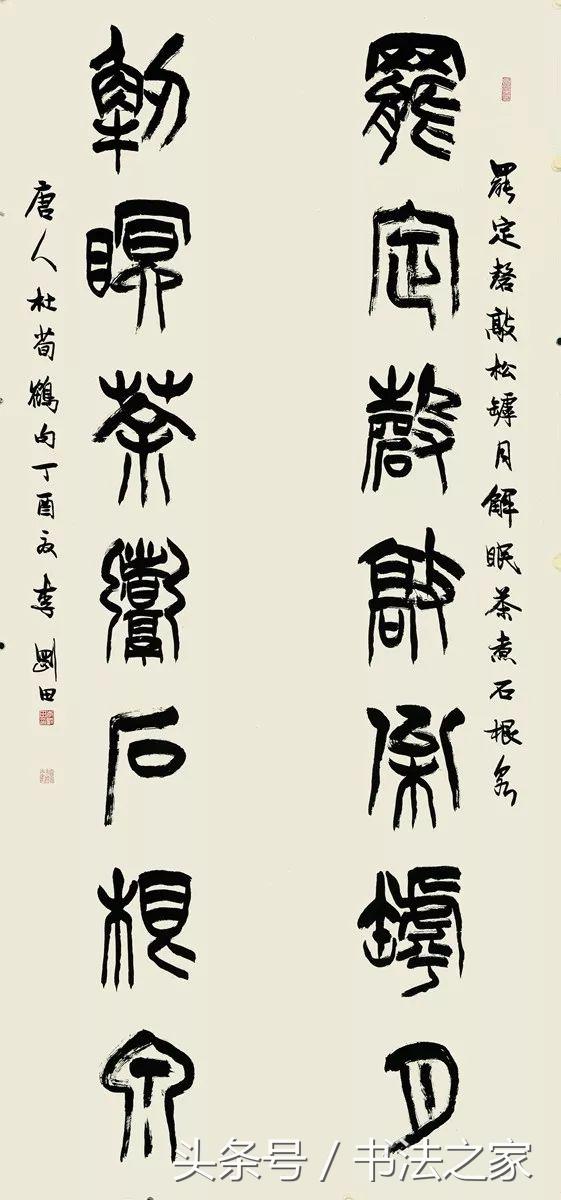 罷定磬敲松罅月解眠茶煮石根泉
罷定磬敲松罅月
解瞑茶煮石根泉
唐人杜荀鶴句丁酉李剛田
头条号 / 书法之家